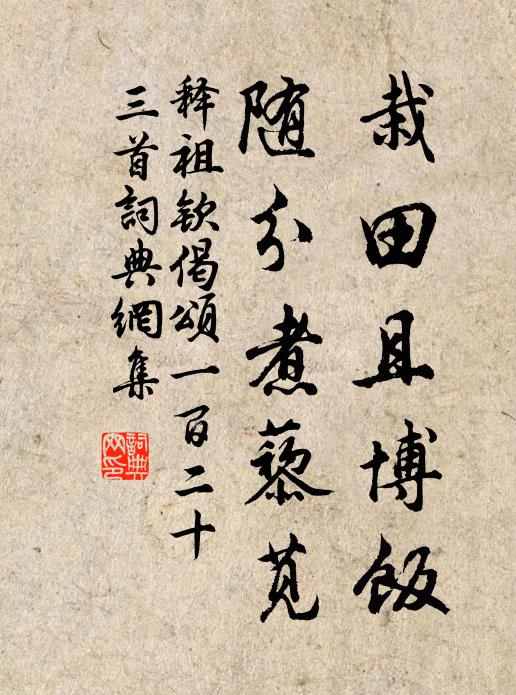 栽田且博饭
随分煮藜苋
释祖钦偈颂一百二十
三首詞典網集
詞典网印